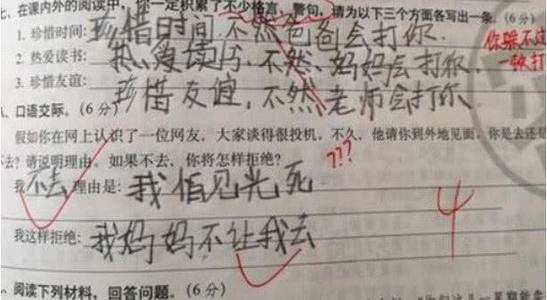 七、在课内外的阅读中,你一定积累了不少格言、警句,请为以下三个方面各写出一条。(6分)
1. 珍惜时间: 珍惜时间,不然爸爸会打你.
你躲不过
2. 热爱读书: 热爱读书,不然,妈妈会打你.
一顿打
3. 珍惜友谊: 珍惜友谊,不然老师会打你
、口语交际。(6分)
假如你在网上认识了一位网友,大家谈得很投机。不久,他请你到外地见面,你是去还是
不去?请说明理由。如果不去,你将怎样拒绝?
???
我不去理由是: 我怕见光死
4
我这样拒绝: 我妈妈不让我去
、阅读下列材料,回答问题。(6分)